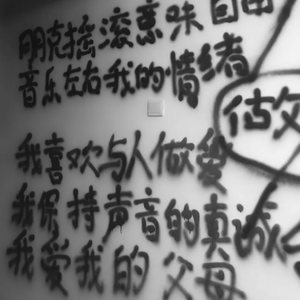 朋克摇滚意味自由
音乐左右我的情绪
我喜欢与人做爱
我保持声音的真诚
我爱我的父母
估父